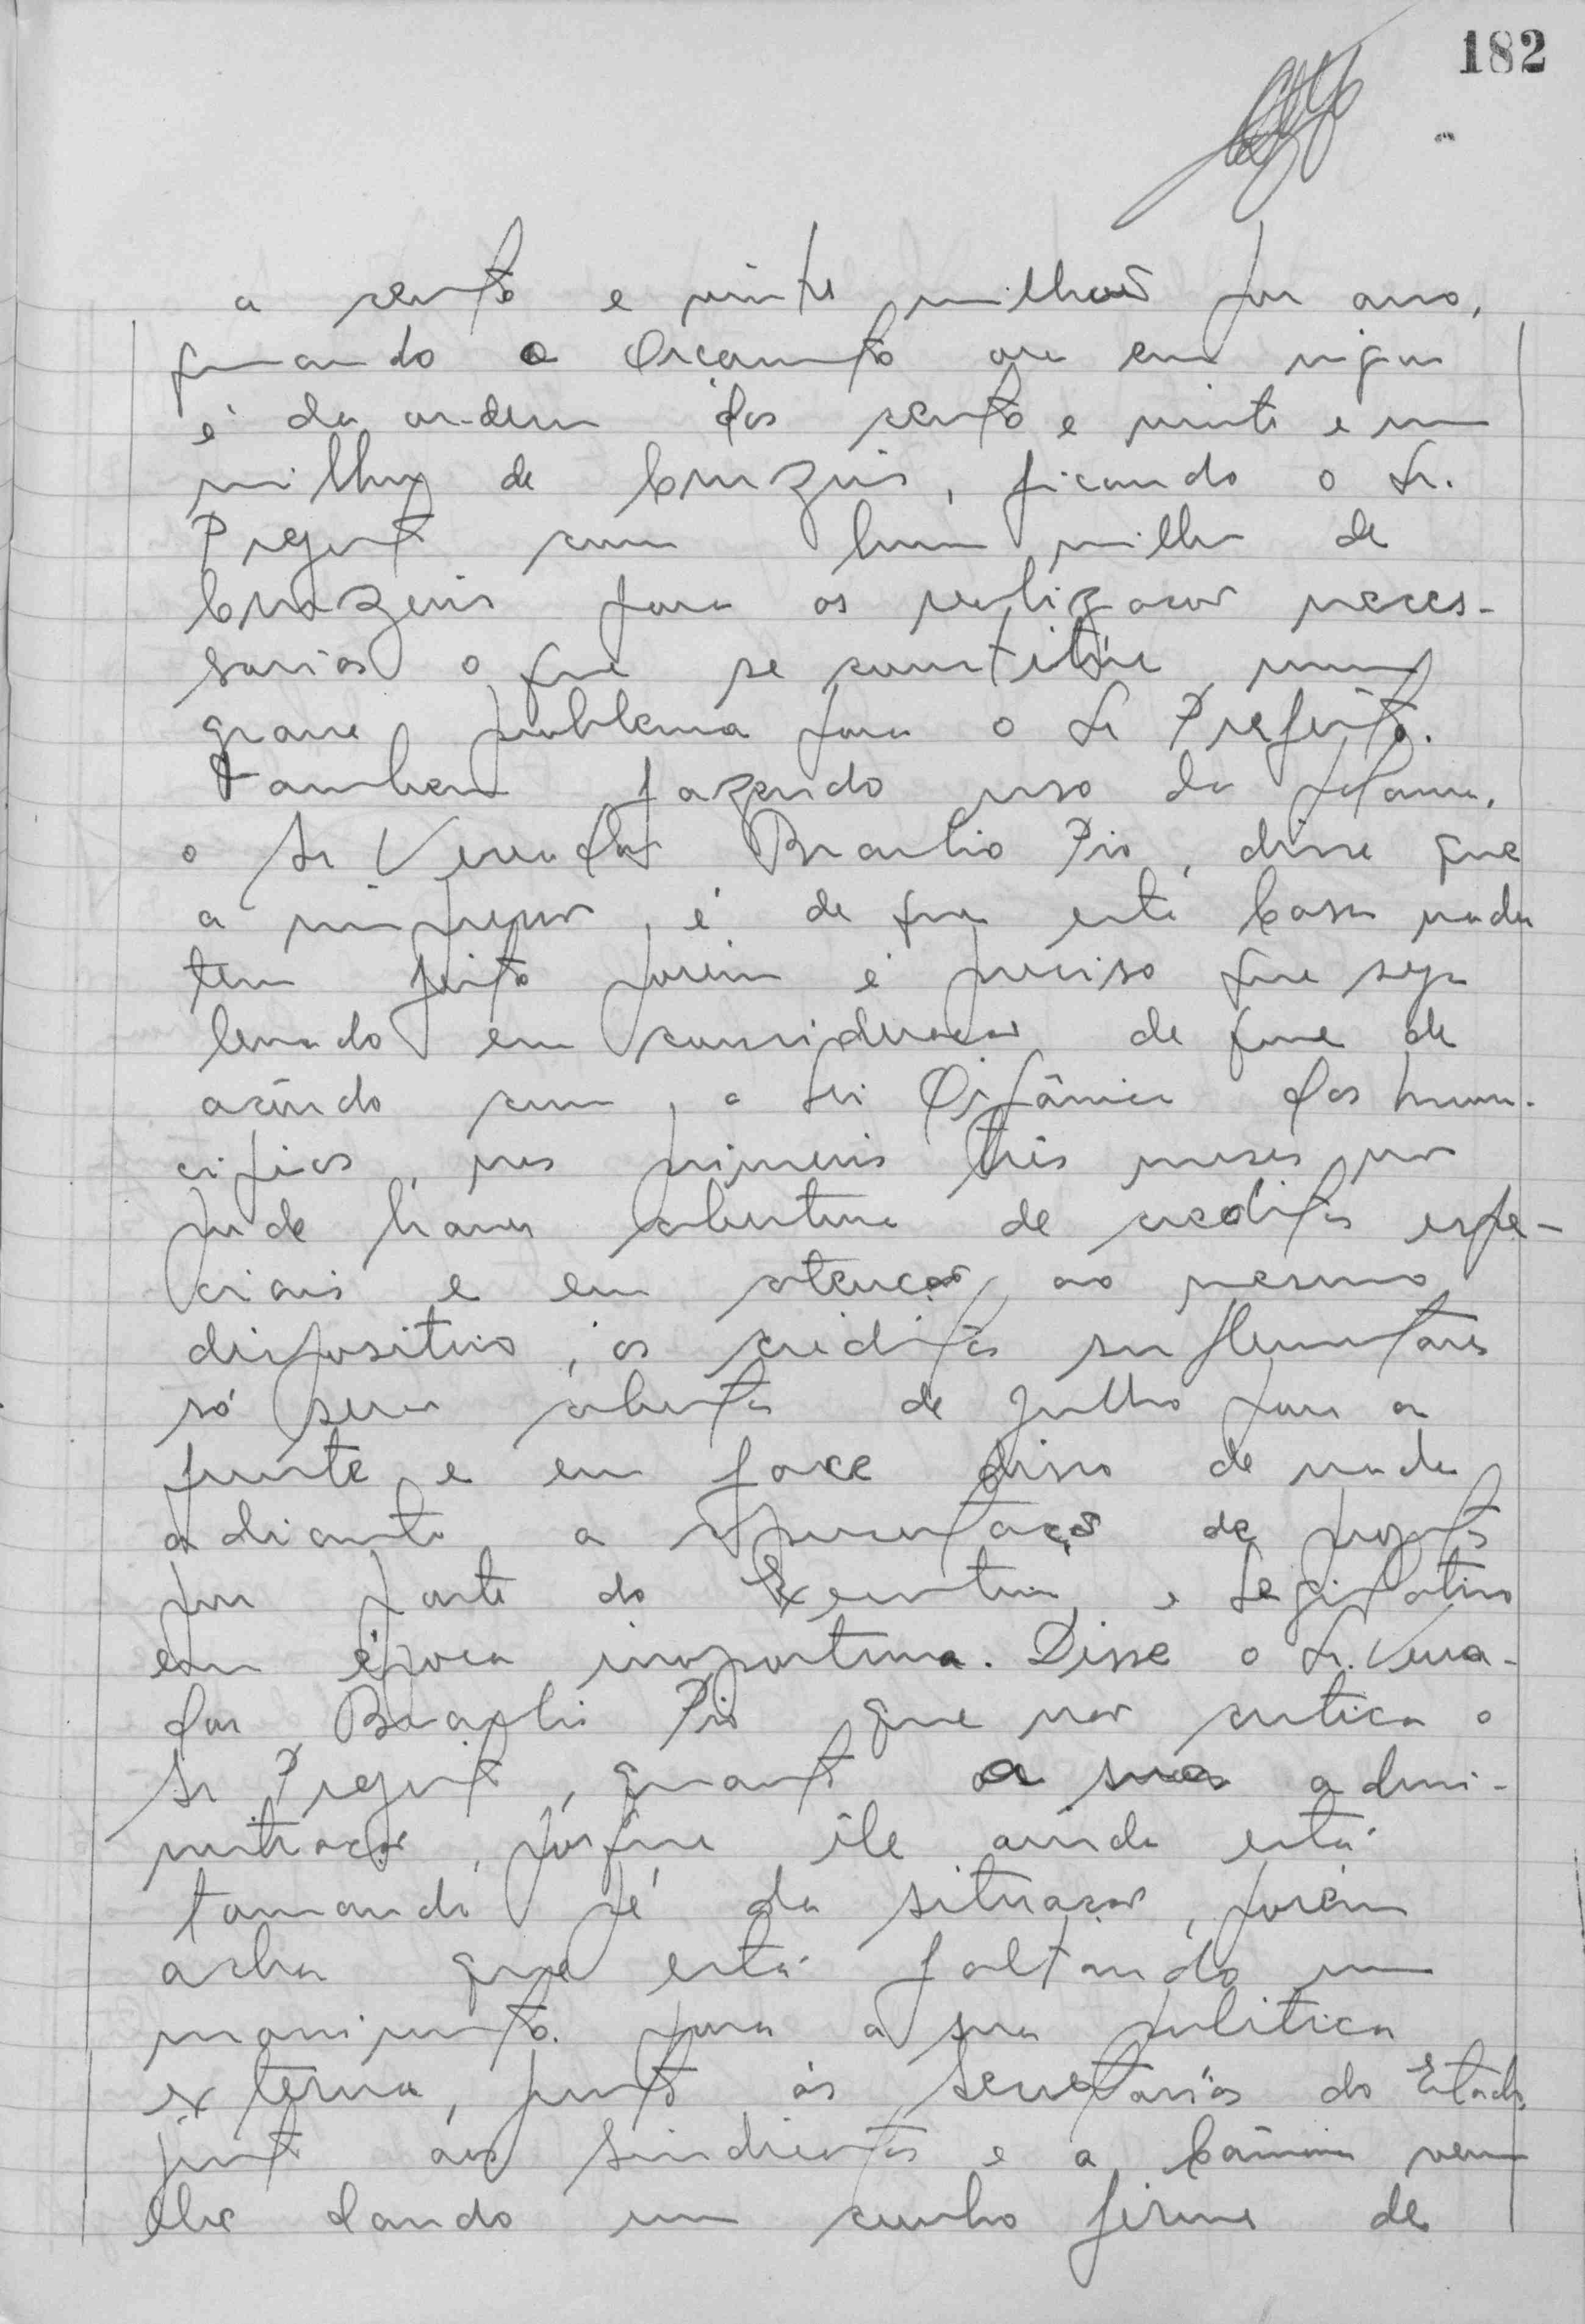 182
a cento e vinte milhões por ano,
quando o Orçamento ora em vigor
é da ordem dos cento e vinte e um
milhões de Cruzeiros, ficando o Sr.
Prefeito com hum milhão de
Cruzeiros para as realizações neces-
sarias o que se constitúe num
grave problema para o Sr Prefeito.
Tambem fazendo uso da palavra,
o Sr Vereador Braulio Pio, disse que
a impressão, é de que esta Casa nada
tem feito porém é preciso que seja
levado em consideração de que de
acôrdo com a Lei Orgânica dos Muni-
cipios, nos primeiros três meses não
pode haver abertura de creditos espe-
ciais e em atenção ao mesmo
dispositivo, os creditos suplementares
só serão abertos de Julho para a
frente e em face disso de nada
adianta a apresentação de projetos
por parte do Executivo e Legislativo
em época inoportuna. Disse o Sr. Verea-
dor Braulio Pio que não critica o
Sr Prefeito, quanto a sua admi-
nistração, porque êle ainda está
tomando pé da situação, porém
acha que está faltando um
movimento para a sua politica
externa, junto ás Secretarias do Estado,
junto aos Sindicatos e a Câmara vem
lhe dando um cunho firme de